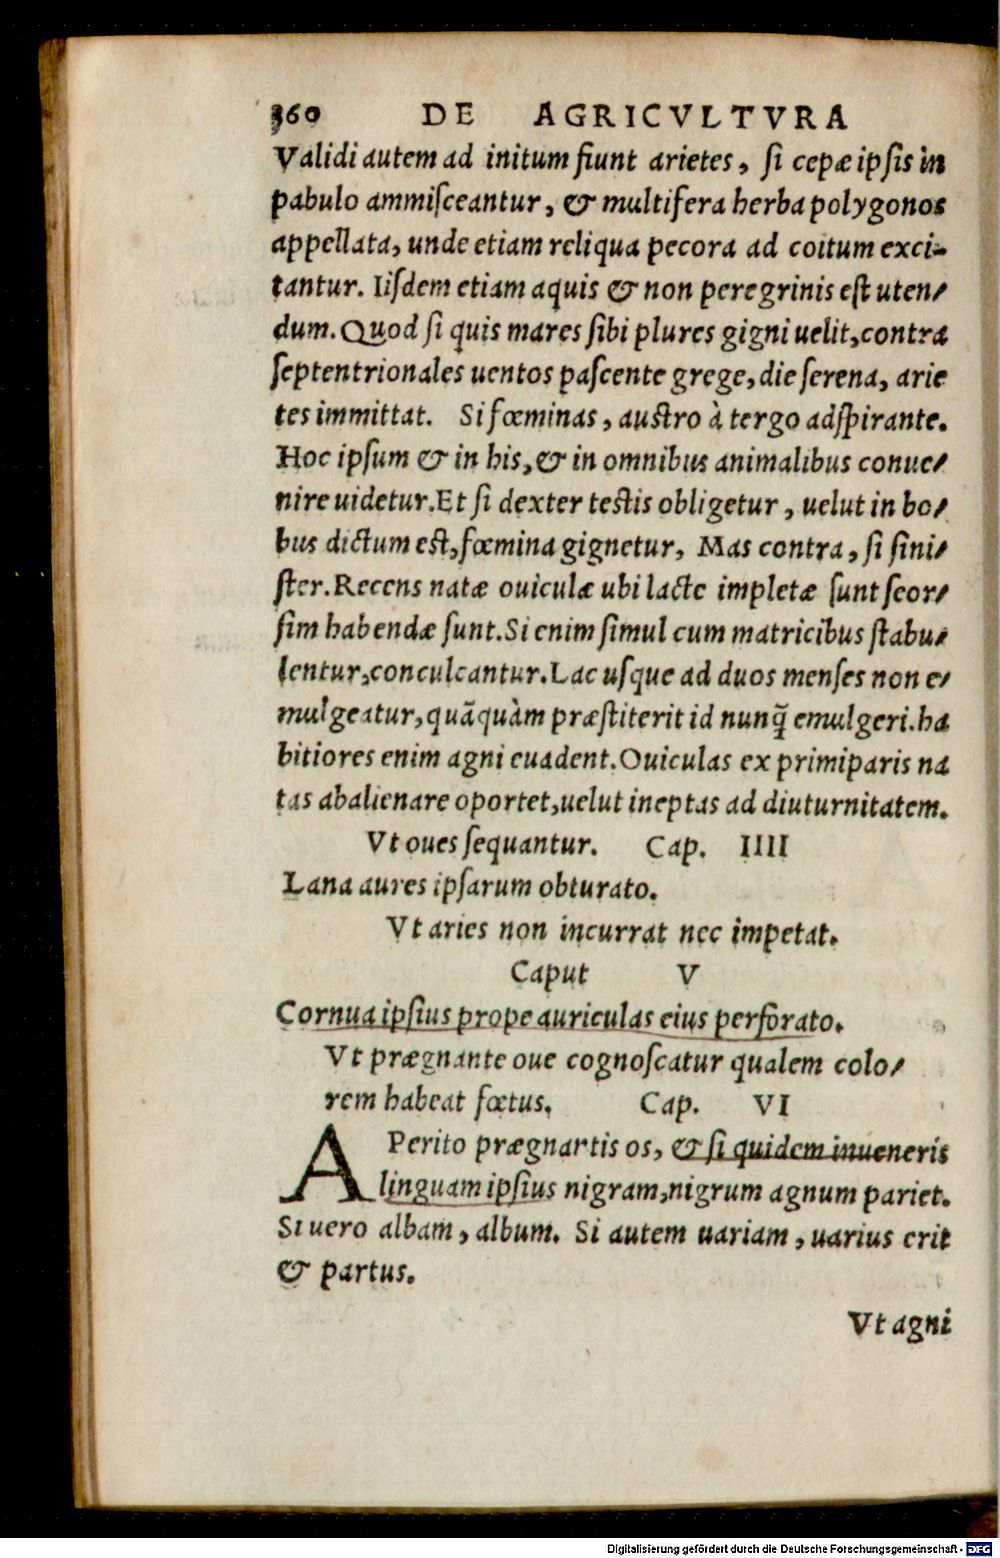 360 DE AGRICVLTVRA
Validi autem ad initum fiunt arietes, ſi cepæ ipſis in
pabulo ammiſceantur, & multifera herba polygonos
appellata, unde etiam reliqua pecora ad coitum exci-
tantur. Iiſdem etiam aquis & non peregrinis eſt uten/
dum. Quod ſi quis mares ſibi plures gigni uelit, contra
ſeptentrionales uentos paſcente grege, die ſerena, arie
tes immittat. Si fœminas, auſtro à tergo adſpirante.
Hoc ipſum & in his, & in omnibus animalibus conue/
nire uidetur. Et ſi dexter teſtis obligetur, uelut in bo/
bus dictum eſt, fœmina gignetur, Mas contra, ſi ſini/
ſter. Recens natæ ouiculæ ubi lacte impletæ ſunt ſeor/
ſim habendæ ſunt. Si enim ſimul cum matricibus ſtabu/
lentur, conculcantur. Lac uſque ad duos menſes non e/
mulgeatur, quãquàm præſtiterit id nunq̃ emulgeri. ha
bitiores enim agni euadent. Ouiculas ex primiparis na
tas abalienare oportet, uelut ineptas ad diuturnitatem.
Vt oues ſequantur. Cap. IIII
Lana aures ipſarum obturato.
Vt aries non incurrat nec impetat.
Caput V
Cornua ipſius prope auriculas eius perforato.
Vt prægnante oue cognoſcatur qualem colo/
rem habeat fœtus. Cap. VI
APerito prægnartis os, & ſi quidem inueneris
linguam ipſius nigram, nigrum agnum pariet.
Si uero albam, album. Si autem uariam, uarius erit
& partus.
Vt agni
Digitalisierung gefördert durch die Deutsche Forschungsgemeinschaft - DFG